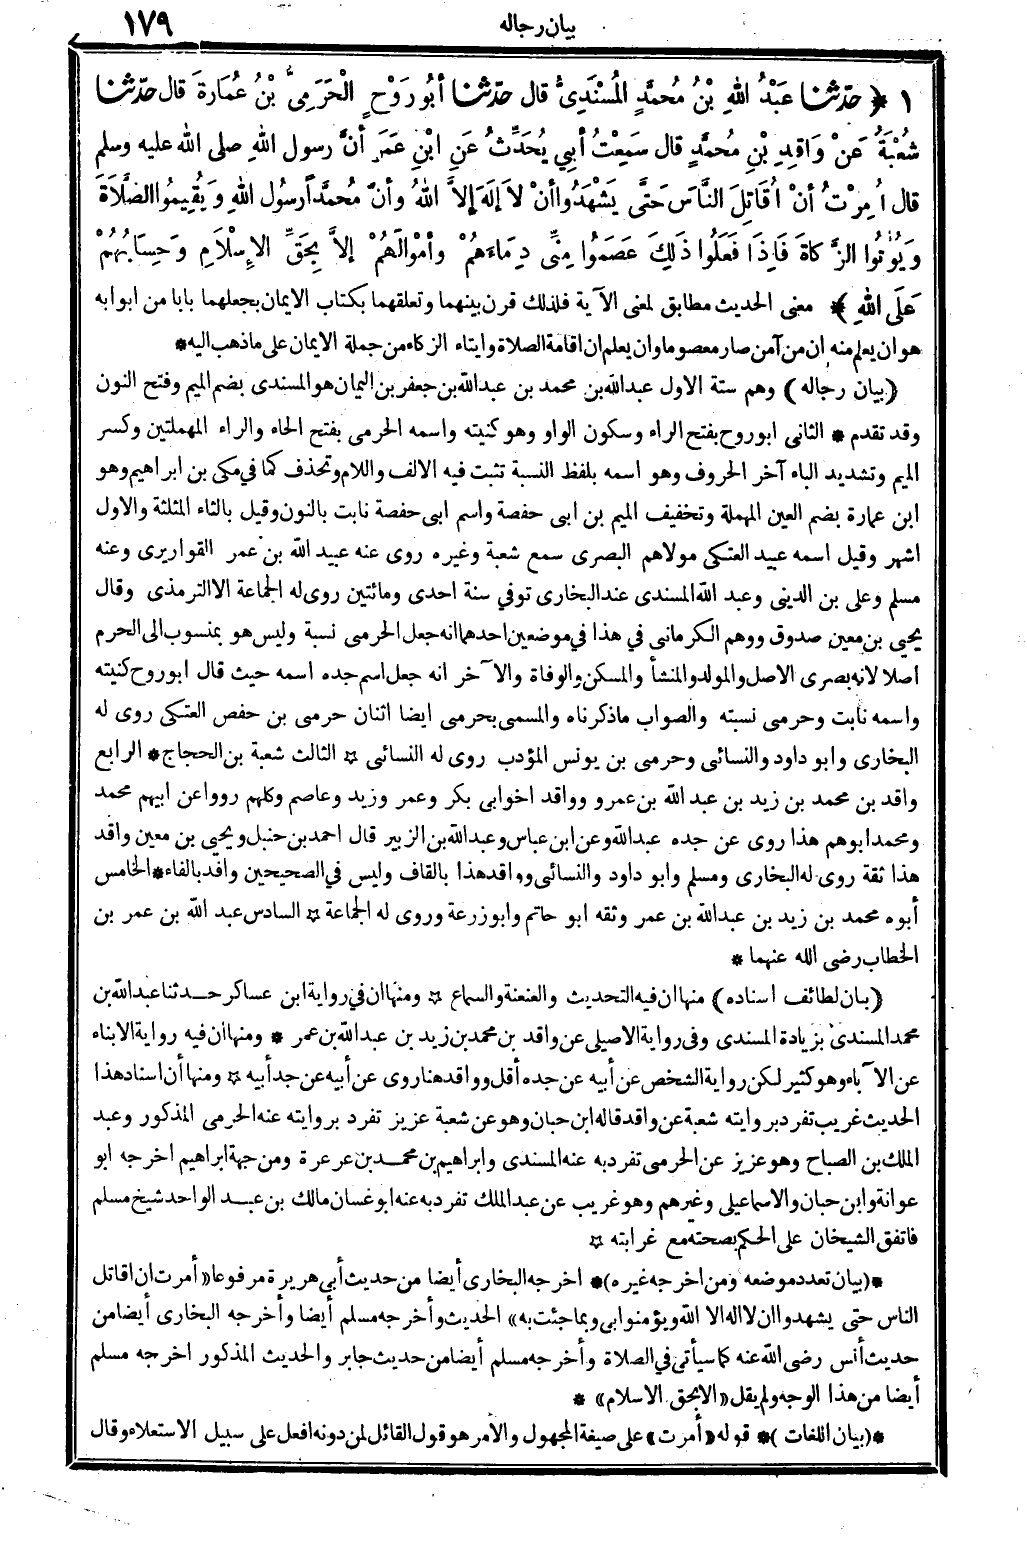 بيان رجاله ١٧٩
١ ﴿ حدّثنا عَبْدُ اللهِ بْنُ مُحمَّدٍ المُسْنَدِىُّ قال حدّثنا أَبُو رَوْحٍ الْحَرَمِىُّ بْنُ عُمَارةَ قال حدّثنا
شُعْبَةُ عَنْ وَاقِدِ بْنِ مُحمَّدٍ قال سَمِعْتُ أبِي يُحَدِّثُ عَنِ ابْنِ عُمَرَ أنَّ رسول اللهِ صلى الله عليه وسلم
قال اُمِرْتُ أنْ اُقَاتِلَ النَّاسَ حَتَّى يَشْهَدُوا أنْ لاَ إلَهَ إلاَّ اللهُ وأنَّ مُحمَّداً رسُول اللهِ وَيُقِيمُوا الصَّلاَةَ
وَيُؤْتُوا الزَّكاةَ فَإذَا فَعَلُوا ذَلِكَ عَصَمُوا مِنِّى دِمَاءَهُمْ وأمْوَالَهُمْ إلاَّ بِحَقِّ الإِسْلاَمِ وَحِسَابُهُمْ
عَلَى اللهِ ﴾ معنى الحديث مطابق لمعنى الآية فلذلك قرن بينهما وتعلقهما بكتاب الايمان بجعلهما بابا من ابوابه
هو ان يعلم منه ان من آمن صار معصوما وان يعلم ان اقامة الصلاة وايتاء الزكاه من جملة الايمان على ماذهب اليه *
(بيان رجاله) وهم ستة الاول عبدالله بن محمد بن عبدالله بن جعفر بن اليمان هو المسندى بضم الميم وفتح النون
وقد تقدم * الثانى ابوروح بفتح الراء وسكون الواو وهو كنيته واسمه الحرمى بفتح الحاء والراء المهملتين وكسر
الميم وتشديد الياء آخر الحروف وهو اسمه بلفظ النسبة تثبت فيه الالف واللام وتحذف كما في مكى بن ابراهيم وهو
ابن عمارة بضم العين المهملة وتخفيف الميم بن ابى حفصة واسم ابى حفصة نابت بالنون وقيل بالثاء المثلثة والاول
اشهر وقيل اسمه عبيد العتكى مولاهم البصرى سمع شعبة وغيره روى عنه عبيد الله بن عمر القواريرى وعنه
مسلم وعلى بن المديني وعبد الله المسندى عند البخارى توفي سنة احدى ومائتين روى له الجماعة الا الترمذى وقال
يحيى بن معين صدوق ووهم الكرمانى في هذا في موضعين احدهما انه جعل الحرمى نسبة وليس هو بمنسوب الى الحرم
اصلا لانه بصرى الاصل والمولد والمنشأ والمسكن والوفاة والآخر انه جعل اسم جده اسمه حيث قال ابوروح كنيته
واسمه نابت وحرمى نسبته والصواب ماذكرناه والمسمى بحرمى ايضا اثنان حرمى بن حفص العتكى روى له
البخارى وابو داود والنسائى وحرمى بن يونس المؤدب روى له النسائى ☆ الثالث شعبة بن الحجاج * الرابع
واقد بن محمد بن زيد بن عبد الله بن عمرو وواقد اخو ابى بكر وعمر وزيد وعاصم وكلهم رووا عن ابيهم محمد
ومحمد ابوهم هذا روى عن جده عبدالله وعن ابن عباس وعبدالله بن الزبير قال احمد بن حنبل ويحيى بن معين واقد
هذا ثقة روى له البخارى ومسلم وابو داود والنسائى وواقد هذا بالقاف وليس في الصحيحين وافد بالفاء * الخامس
أبوه محمد بن زيد بن عبدالله بن عمر وثقه ابو حاتم وابوزرعة وروى له الجماعة ☆ السادس عبد الله بن عمر بن
الخطاب رضى الله عنهما *
(بيان لطائف اسناده) منها ان فيه التحديث والعنعنة والسماع ☆ ومنها ان في رواية ابن عساكر حدثنا عبدالله بن
محمد المسندى بزيادة المسندى وفى رواية الاصيلى عن واقد بن محمد بن زيد بن عبدالله بن عمر * ومنها ان فيه رواية الابناء
عن الآباء وهو كثير لكن رواية الشخص عن أبيه عن جده أقل وواقد هنا روى عن أبيه عن جد أبيه ☆ ومنها أن اسناد هذا
الحديث غريب تفرد بروايته شعبة عن واقد قاله ابن حبان وهو عن شعبة عزيز تفرد بروايته عنه الحرمى المذكور وعبد
الملك بن الصباح وهو عزيز عن الحرمى تفرد به عنه المسندى وابراهيم بن محمد بن عرعرة ومن جهة ابراهيم اخرجه ابو
عوانة وابن حبان والاسماعيلى وغيرهم وهو غريب عن عبد الملك تفرد به عنه ابو غسان مالك بن عبد الواحد شيخ مسلم
فاتفق الشيخان على الحكم بصحته مع غرابته ☆
*(بيان تعدد موضعه ومن اخرجه غيره)* اخرجه البخارى أيضا من حديث أبى هريرة مرفوعا «أمرت ان اقاتل
الناس حتى يشهدوا ان لا اله الا الله ويؤمنوا بى وبما جئت به» الحديث وأخرجه مسلم أيضا وأخرجه البخارى أيضا من
حديث أنس رضى الله عنه كما سيأتى في الصلاة وأخرجه مسلم أيضا من حديث جابر والحديث المذكور اخرجه مسلم
أيضا من هذا الوجه ولم يقل «الا بحق الاسلام» *
*(بيان اللغات)* قوله «أمرت» على صيغة المجهول والأمر هو قول القائل لمن دونه افعل على سبيل الاستعلاء وقال